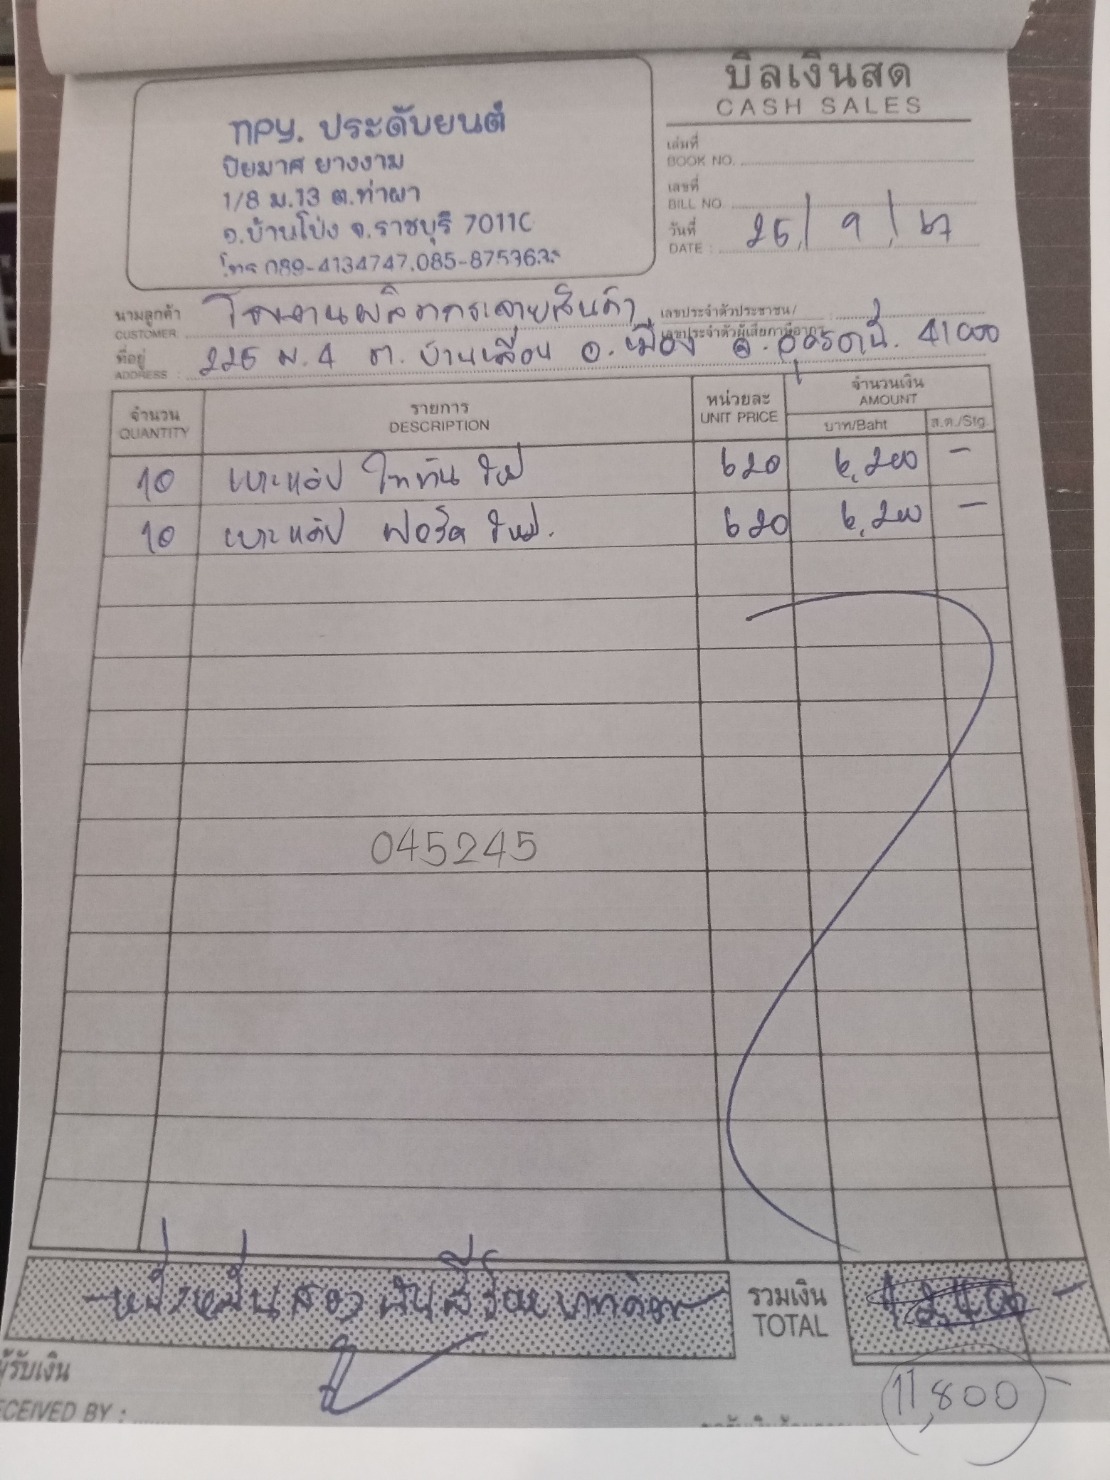 บิลเงินสด
CASH SALES
ทPY. ประดับยนต์
ปิยมาศ ยางงาม
1/8 ม.13 ต.ท่าผา
อ.บ้านโป่ง จ.ราชบุรี 70110
โทร 089-4134747,085-875
เล่มที่
BOOK NO.
เลขที่
BILL NO.
วันที่
DATE : 25/ 9 / 67
นามลูกค้า
CUSTOMER โรงงานผลิตกระจายสินค้า
เลขประจำตัวประชาชน/
เลขประจำตัวผู้เสียภาษีอากร
ที่อยู่
ADDRESS : 225 ม. 4 ต. บ้านเลื่อม อ. เมือง จ. อุดรธานี. 41000
จำนวน รายการ หน่วยละ จำนวนเงิน
QUANTITY DESCRIPTION UNIT PRICE AMOUNT
บาท/Baht ส.ต./Stg.
10 เบาะแค๊ป ไททัน ใหม่ 620 6,200 -
10 เบาะแค๊ป ฟอร์ด ใหม่. 620 6,200 -
045245
หนึ่งหมื่นสองพันสี่ร้อยบาทถ้วน
รวมเงิน
TOTAL 12,400 -
ผู้รับเงิน
RECEIVED BY :
11,800 -